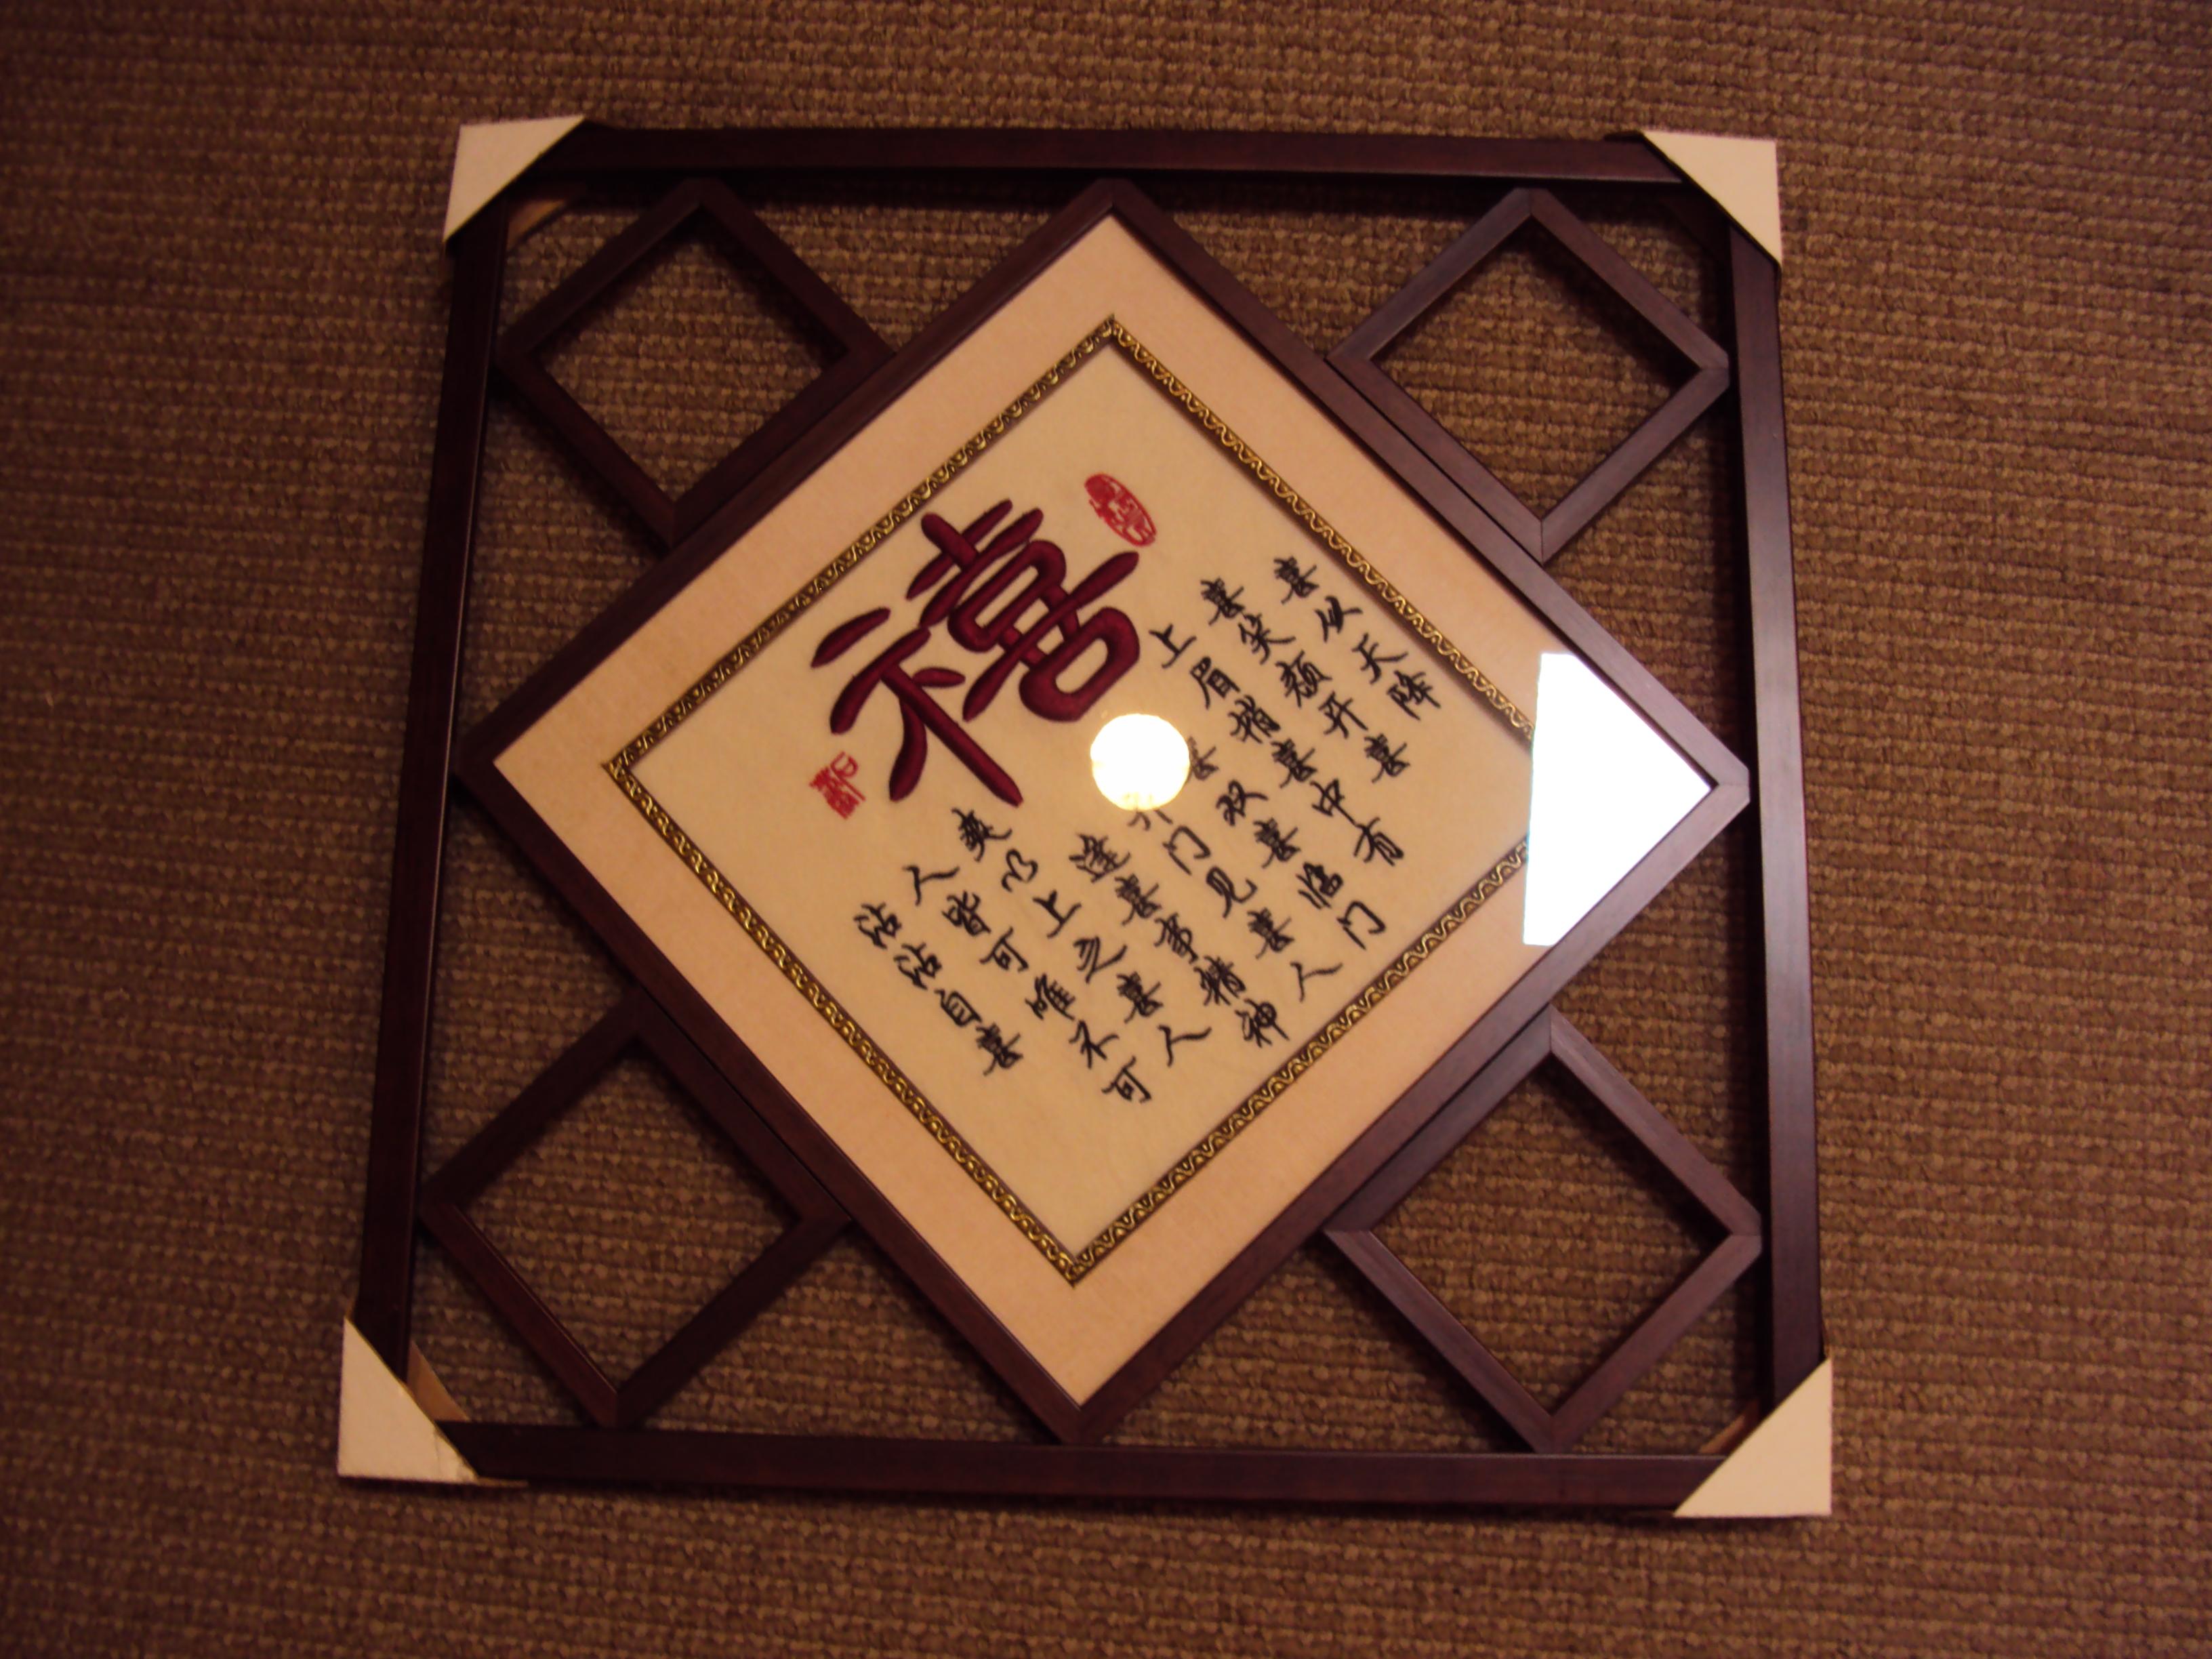 禧
喜从天降
喜笑颜开喜
上眉梢喜中有
喜双喜临门
开门见喜人
逢喜事精神
爽乃上之喜人
人皆可唯不可
沾沾自喜